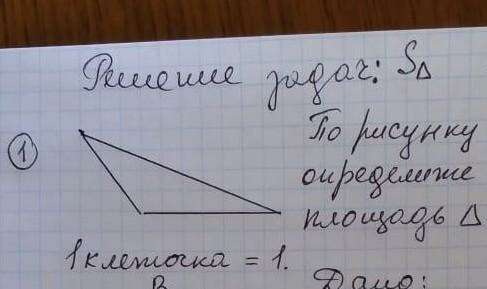 Решение задач: S△
① По рисунку
определите
площадь △
1 клеточка = 1.
В
Дано: